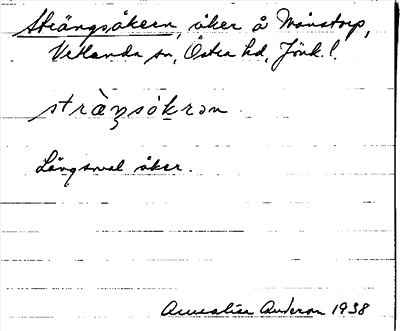 Strängsåkern, åker å Månstorp,
Vetlanda sn, Östra hd, Jönk. l.
stràŋsòkrən
Långsmal åker.
Annalisa Anderson 1938